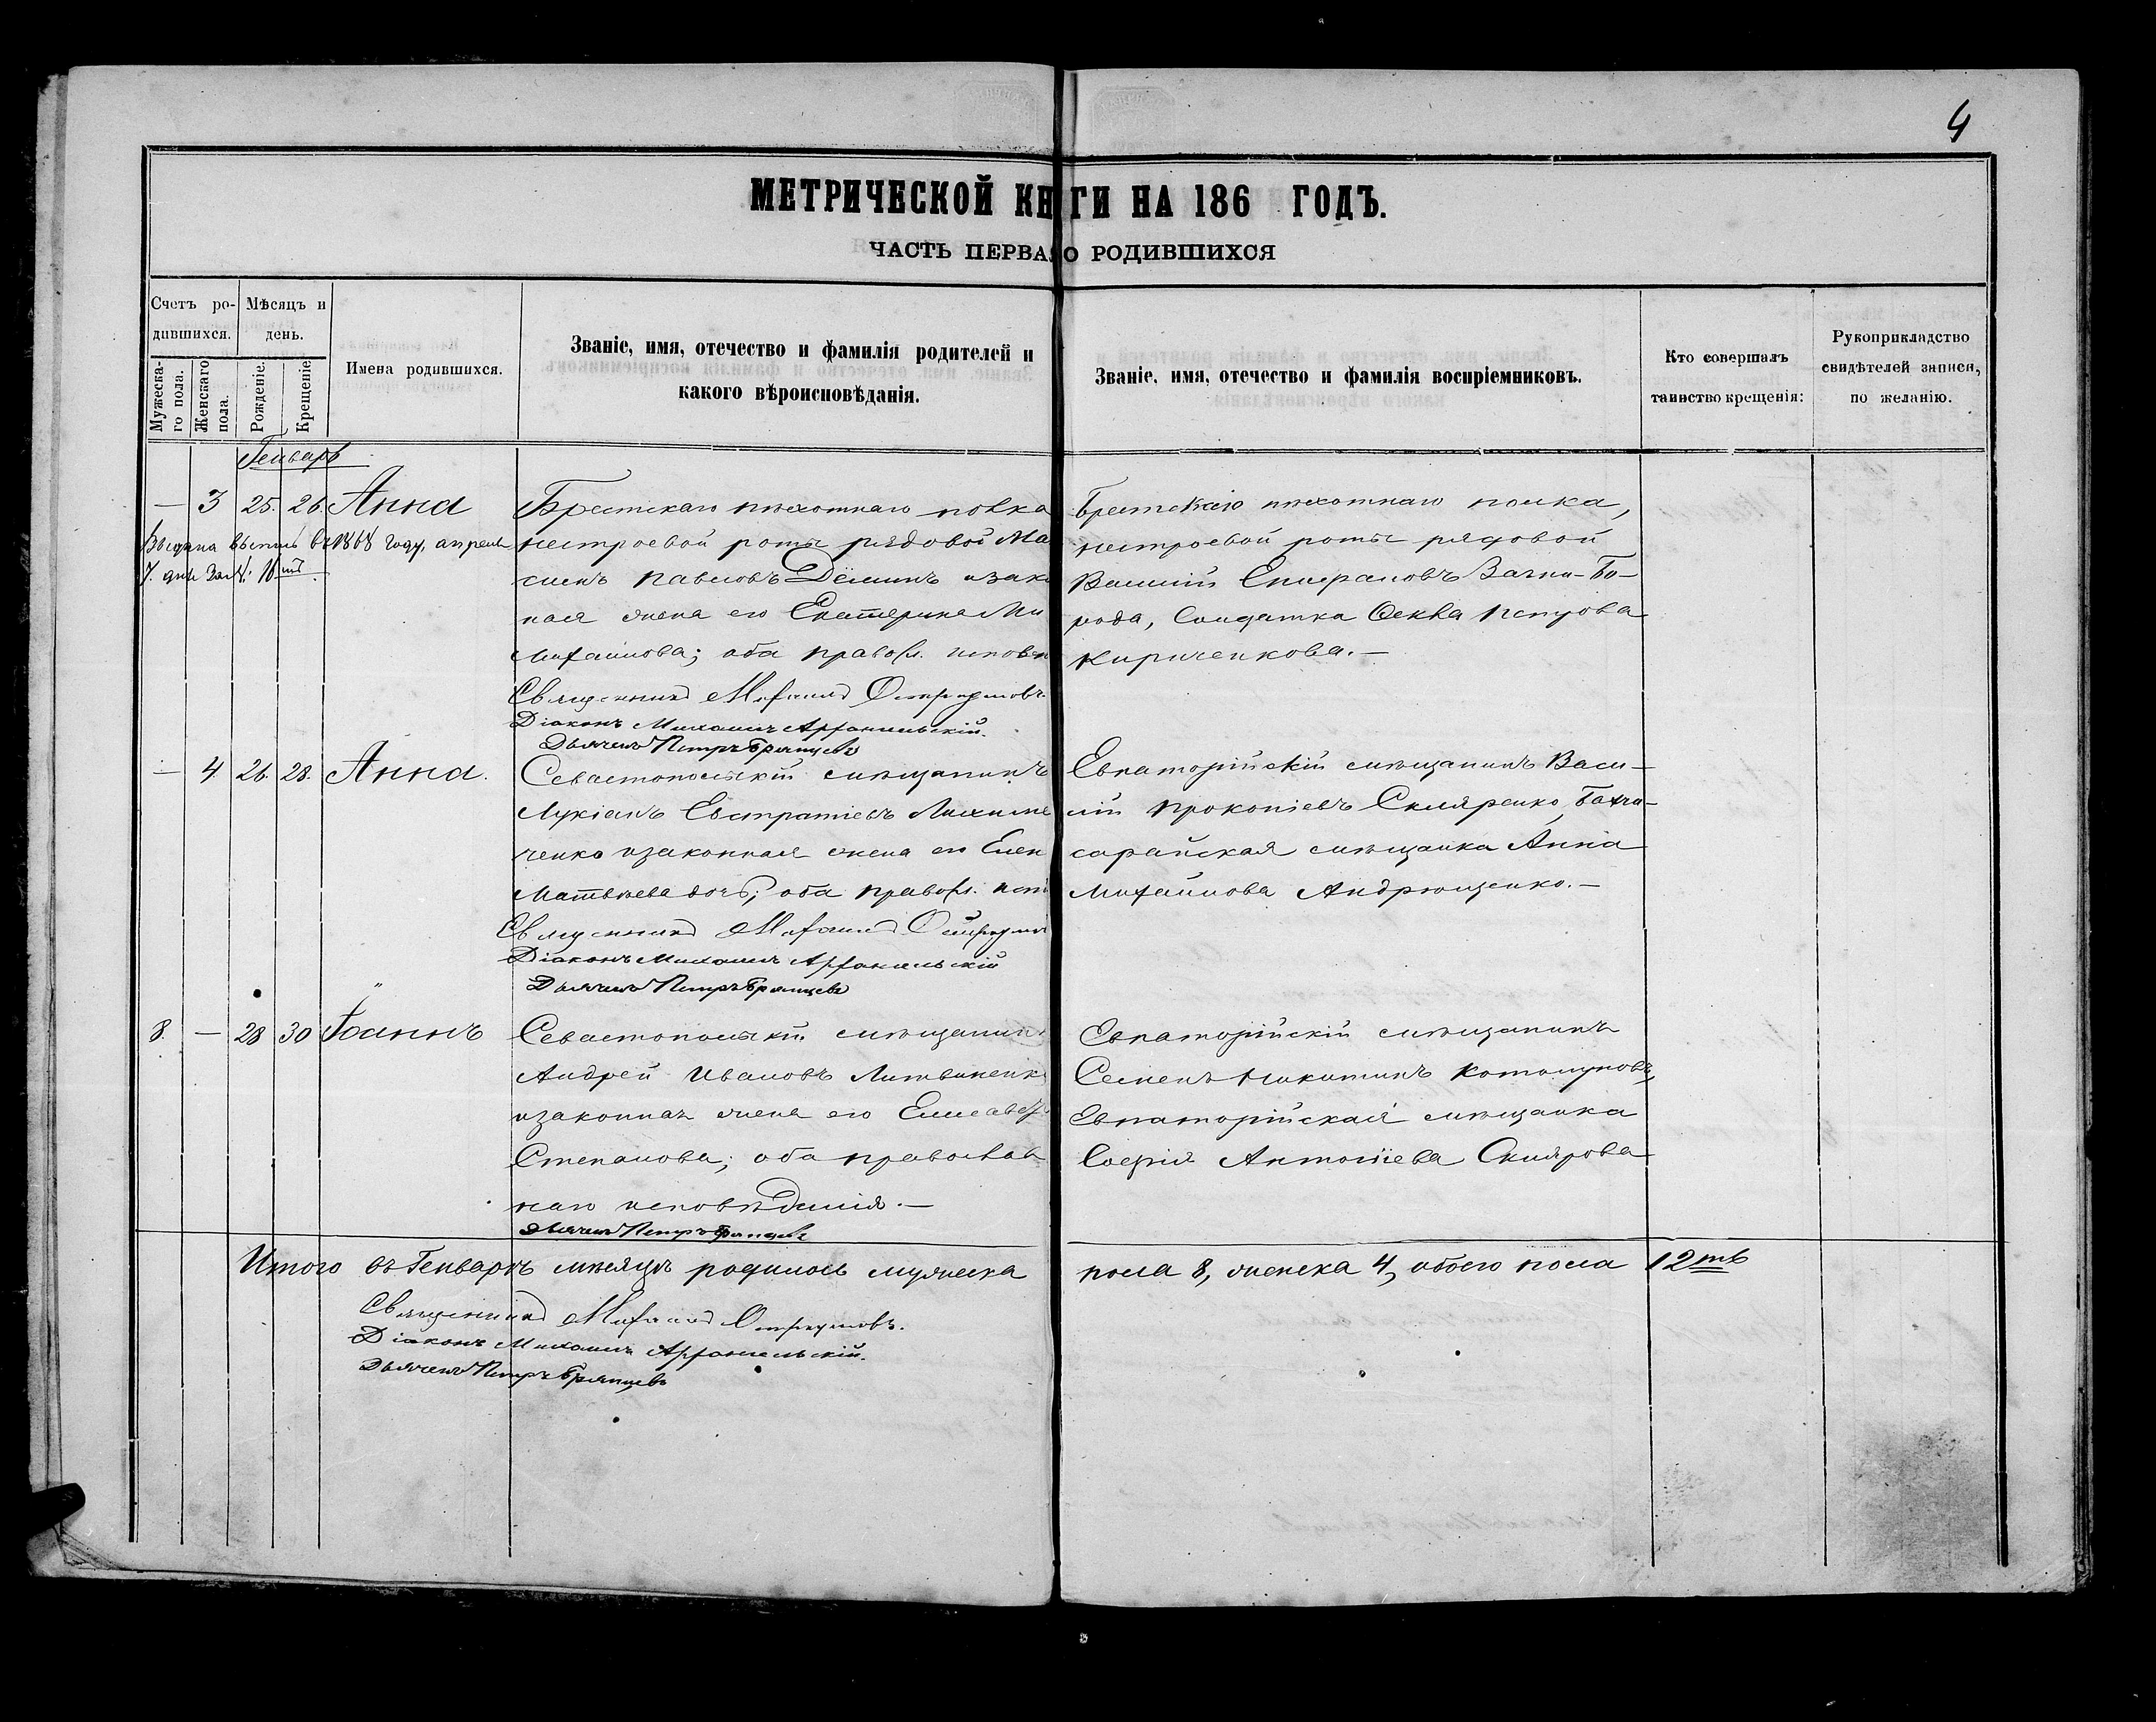 4
МЕТРИЧЕСКОЙ КНИГИ НА 186 ГОДЪ.
ЧАСТЬ ПЕРВАЯ О РОДИВШИХСЯ
Счетъ родившихся.
Мужескаго пола.
Женскаго пола.
Мѣсяцъ и день.
Рожденіе.
Крещеніе.
Имена родившихся.
Званіе, имя, отечество и фамилія родителей и
какого вѣроисповѣданія.
Званіе, имя, отечество и фамилія воспріемниковъ.
Кто совершалъ
таинство крещенія:
Рукоприкладство
свидѣтелей записи,
по желанію.
Генварь
— 3 25. 26. Анна
Выдана въ 1868 году, апреля
7. дня 16
Брестскаго пѣхотнаго полка
нестроевой роты рядовой Ма
Павловъ Дёминъ изако
ная жена его Екатерина Ми
Михаилова; оба правосл. исповѣ
Священникъ Михаилъ
Діаконъ Михаилъ Архангельскій.
Дьячекъ Петръ Брянцевъ
Брестскаго пѣхотнаго полка,
нестроевой роты рядовой
Василій Бо-
рода, Солдатка Петрова
Кириченкова. —
— 4 26. 28. Анна.
Севастопольскій мѣщанинъ
Лукіанъ Евстратіевъ
ченко изаконная жена его Елен
Матвѣева дочь; оба правосл. испо
Священникъ Михаилъ
Діаконъ Михаилъ Архангельскій
Дьячекъ Петръ Брянцевъ
Евпаторійскій мѣщанинъ Васи-
лій Прокопіевъ Скляренко, Бахчи-
сарайская мѣщанка Анна
Михаилова Андрющенко. —
8. — 28 30 Іоаннъ
Севастопольскій мѣщанинъ
Андрей Ивановъ Литвиненко
изаконная жена его Елисавет
Степанова; оба православ
наго исповѣданія. —
Дьячекъ Петръ Брянцевъ
Евпаторійскій мѣщанинъ
Семенъ Никитинъ
Евпаторійская мѣщанка
Софія Антоніева Склярова
Итого въ Генварѣ мѣсяцѣ родилось мужеска
пола 8, женска 4, обоего пола 12ть
Священникъ Михаилъ
Діаконъ Михаилъ Архангельскій.
Дьячекъ Петръ Брянцевъ